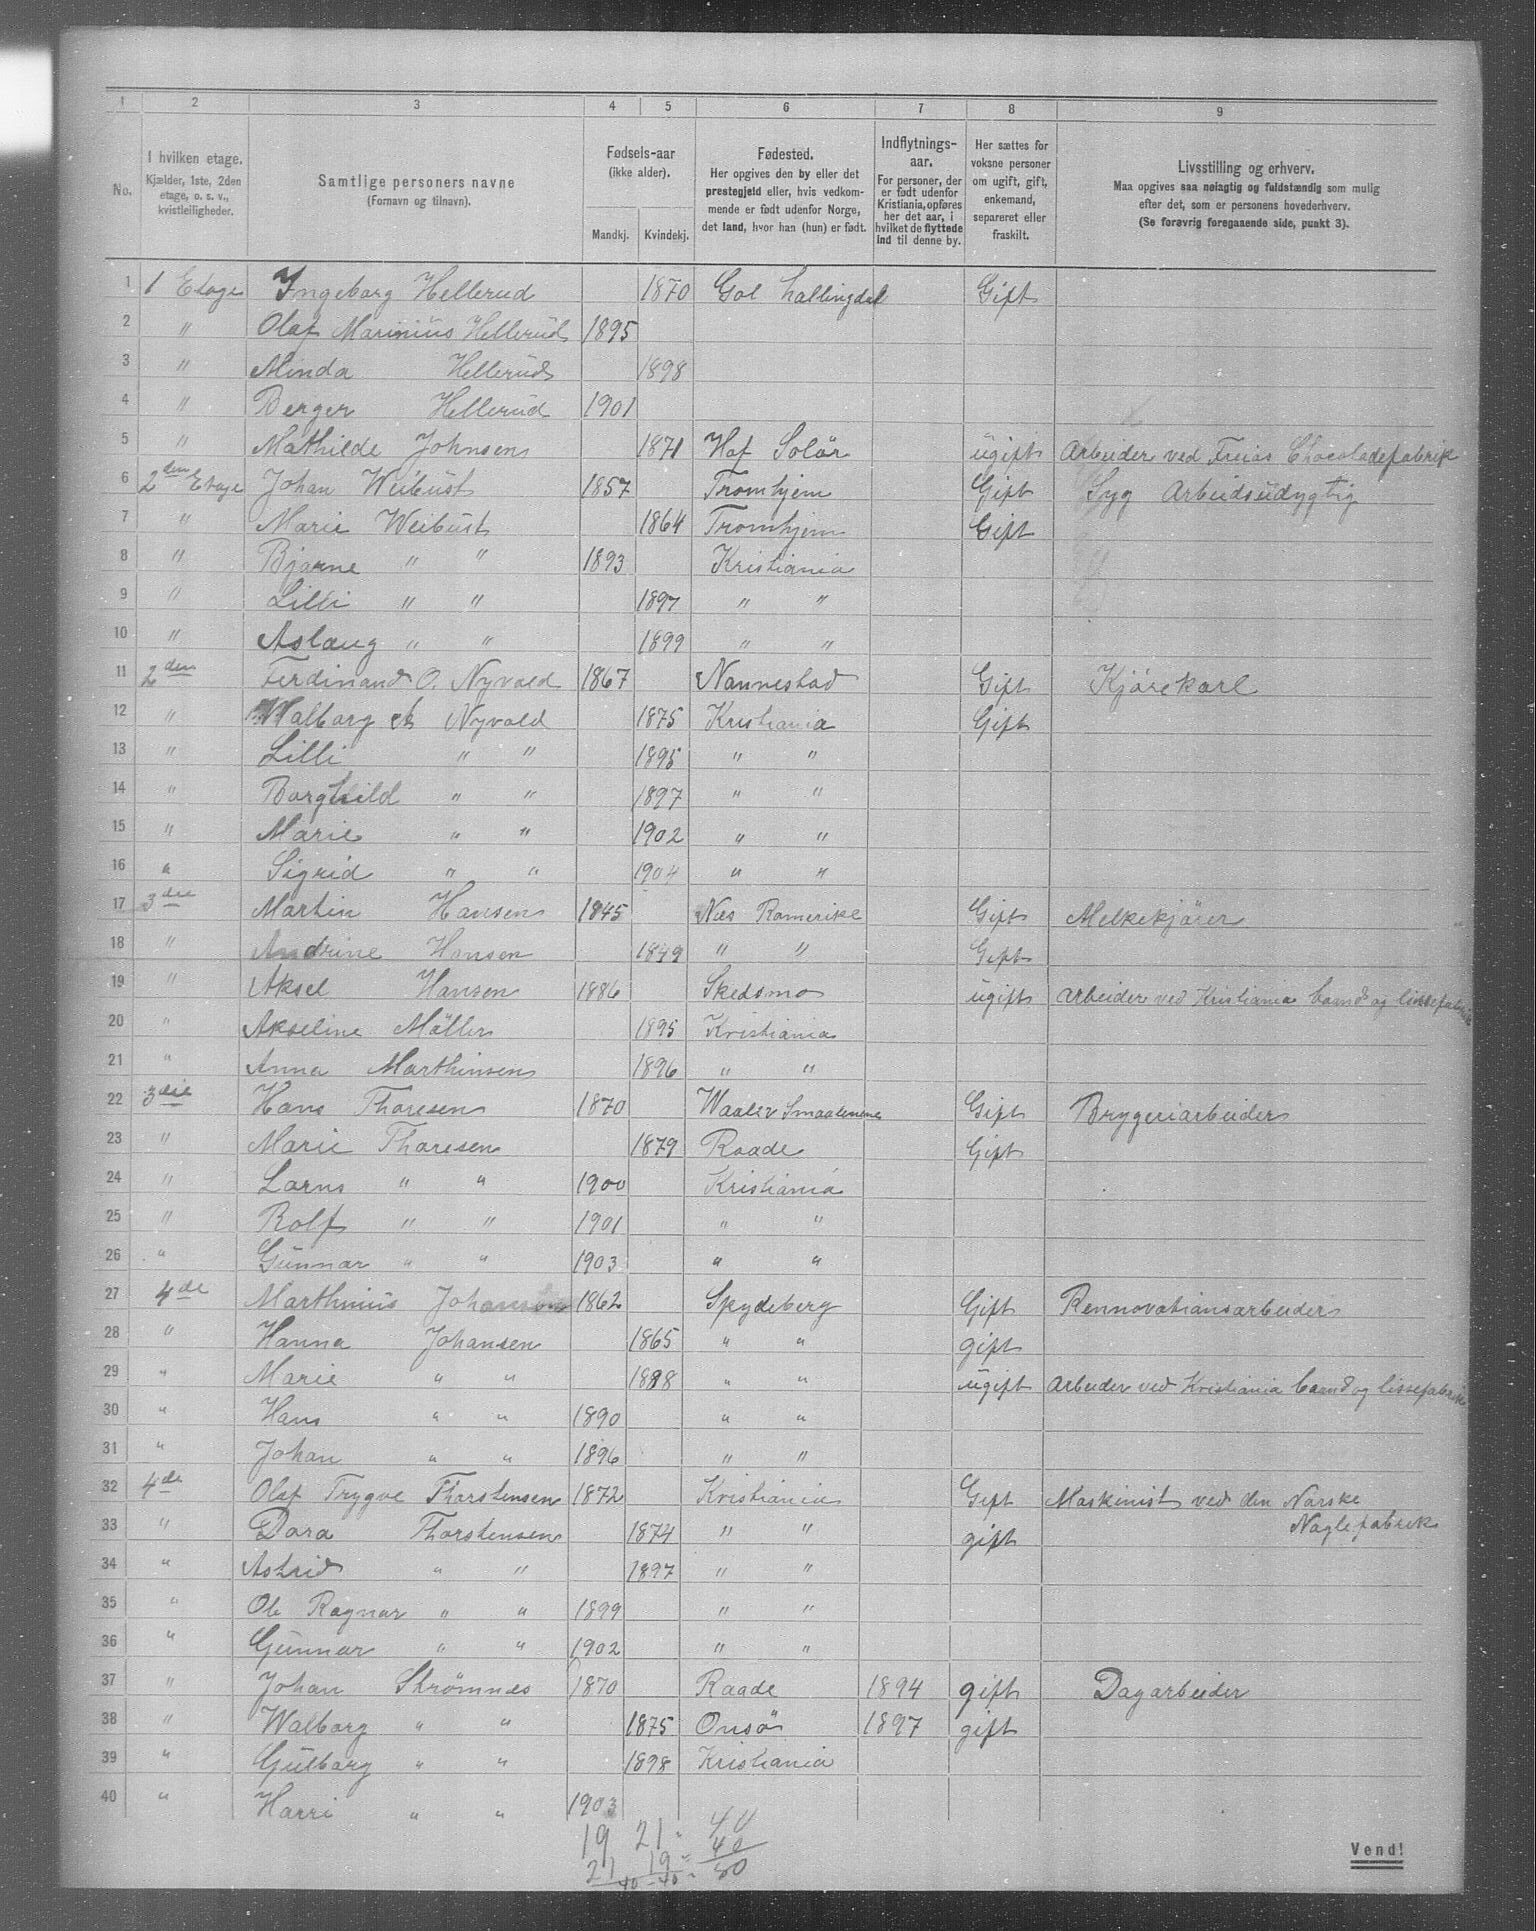 1 2 3 4 5 6 7 8 9
No. I hvilken etage. Kjælder, 1ste, 2den etage, o. s. v., kvistleiligheder. Samtlige personers navne (Fornavn og tilnavn). Fødsels-aar (ikke alder). Mandkj. Kvindekj. Fødested. Her opgives den by eller det prestegjeld eller, hvis vedkommende er født udenfor Norge, det land, hvor han (hun) er født. Indflytnings-aar. For personer, der er født udenfor Kristiania, opføres her det aar, i hvilket de flyttede ind til denne by. Her sættes for voksne personer om ugift, gift, enkemand, separeret eller fraskilt. Livsstilling og erhverv. Maa opgives saa nøiagtig og fuldstændig som mulig efter det, som er personens hovederhverv. (Se forøvrig foregaaende side, punkt 3).
1 1 Etage Ingeborg Hellerud 1870 Gol Hallingdal Gift
2 " Olaf Marinius Hellerud 1895
3 " Minda Hellerud 1898
4 " Berger Hellerud 1901
5 " Mathilde Johnsen 1871 Hof Solör ugift Arbeider ved Freias Chocoladefabrik
6 2den Etage Johan Weibust 1857 Tromhjem Gift Syg Arbeidsudygtig
7 " Marie Weibust 1864 Tromhjem Gift
8 " Bjarne " " 1893 Kristiania
9 " Lilli " " 1897 " "
10 " Aslaug " " 1899 " "
11 2den Ferdinand O. Nyvold 1867 Nannestad Gift Kjörekarl
12 " Walborg Nyvold 1875 Kristiania Gift
13 " Lilli " " 1895 " "
14 " Borghild " " 1897 " "
15 " Marie " " 1902 " "
16 " Sigrid " " 1904 " "
17 3die Martin Hansen 1845 Nes Romerike Gift Melkekjörer
18 " Andrine Hansen 1849 " " Gift
19 " Aksel Hansen 1886 Skedsmo ugift Arbeider ved Kristiania baand og lissefabrik
20 " Akseline Möller 1895 Kristiania
21 " Anna Marthinsen 1896 " "
22 3die Hans Thoresen 1870 Waaler Smaalenene Gift Bryggeriarbeider
23 " Marie Thoresen 1879 Raade Gift
24 " Lorns " " 1900 Kristiania
25 " Rolf " " 1901 " "
26 " Gunnar " " 1903 " "
27 4de Marthinius Johansen 1862 Spydeberg Gift Rennovationsarbeider
28 " Hanna Johansen 1865 " " gift
29 " Marie " " 1888 " " ugift Arbeider ved Kristiania baand og lissefabrik
30 " Hans " " 1890 " "
31 " Johan " " 1896 " "
32 4de Olaf Trygve Thorstensen 1872 Kristiania Gift Maskinist ved den Norske
33 " Dora Thorstensen 1874 " " gift Naglefabrik
34 " Astrid " " 1897 " "
35 " Ole Ragnar " " 1899 " "
36 " Gunnar " " 1902 " "
37 " Johan Strömnes 1870 Raade 1894 gift Dagarbeider
38 " Walborg " " 1875 Onsö 1897 gift
39 " Gulborg " " 1898 Kristiania
40 " Harri " " 1903
19 21 40
21 19 40
40 40 80
Vend!